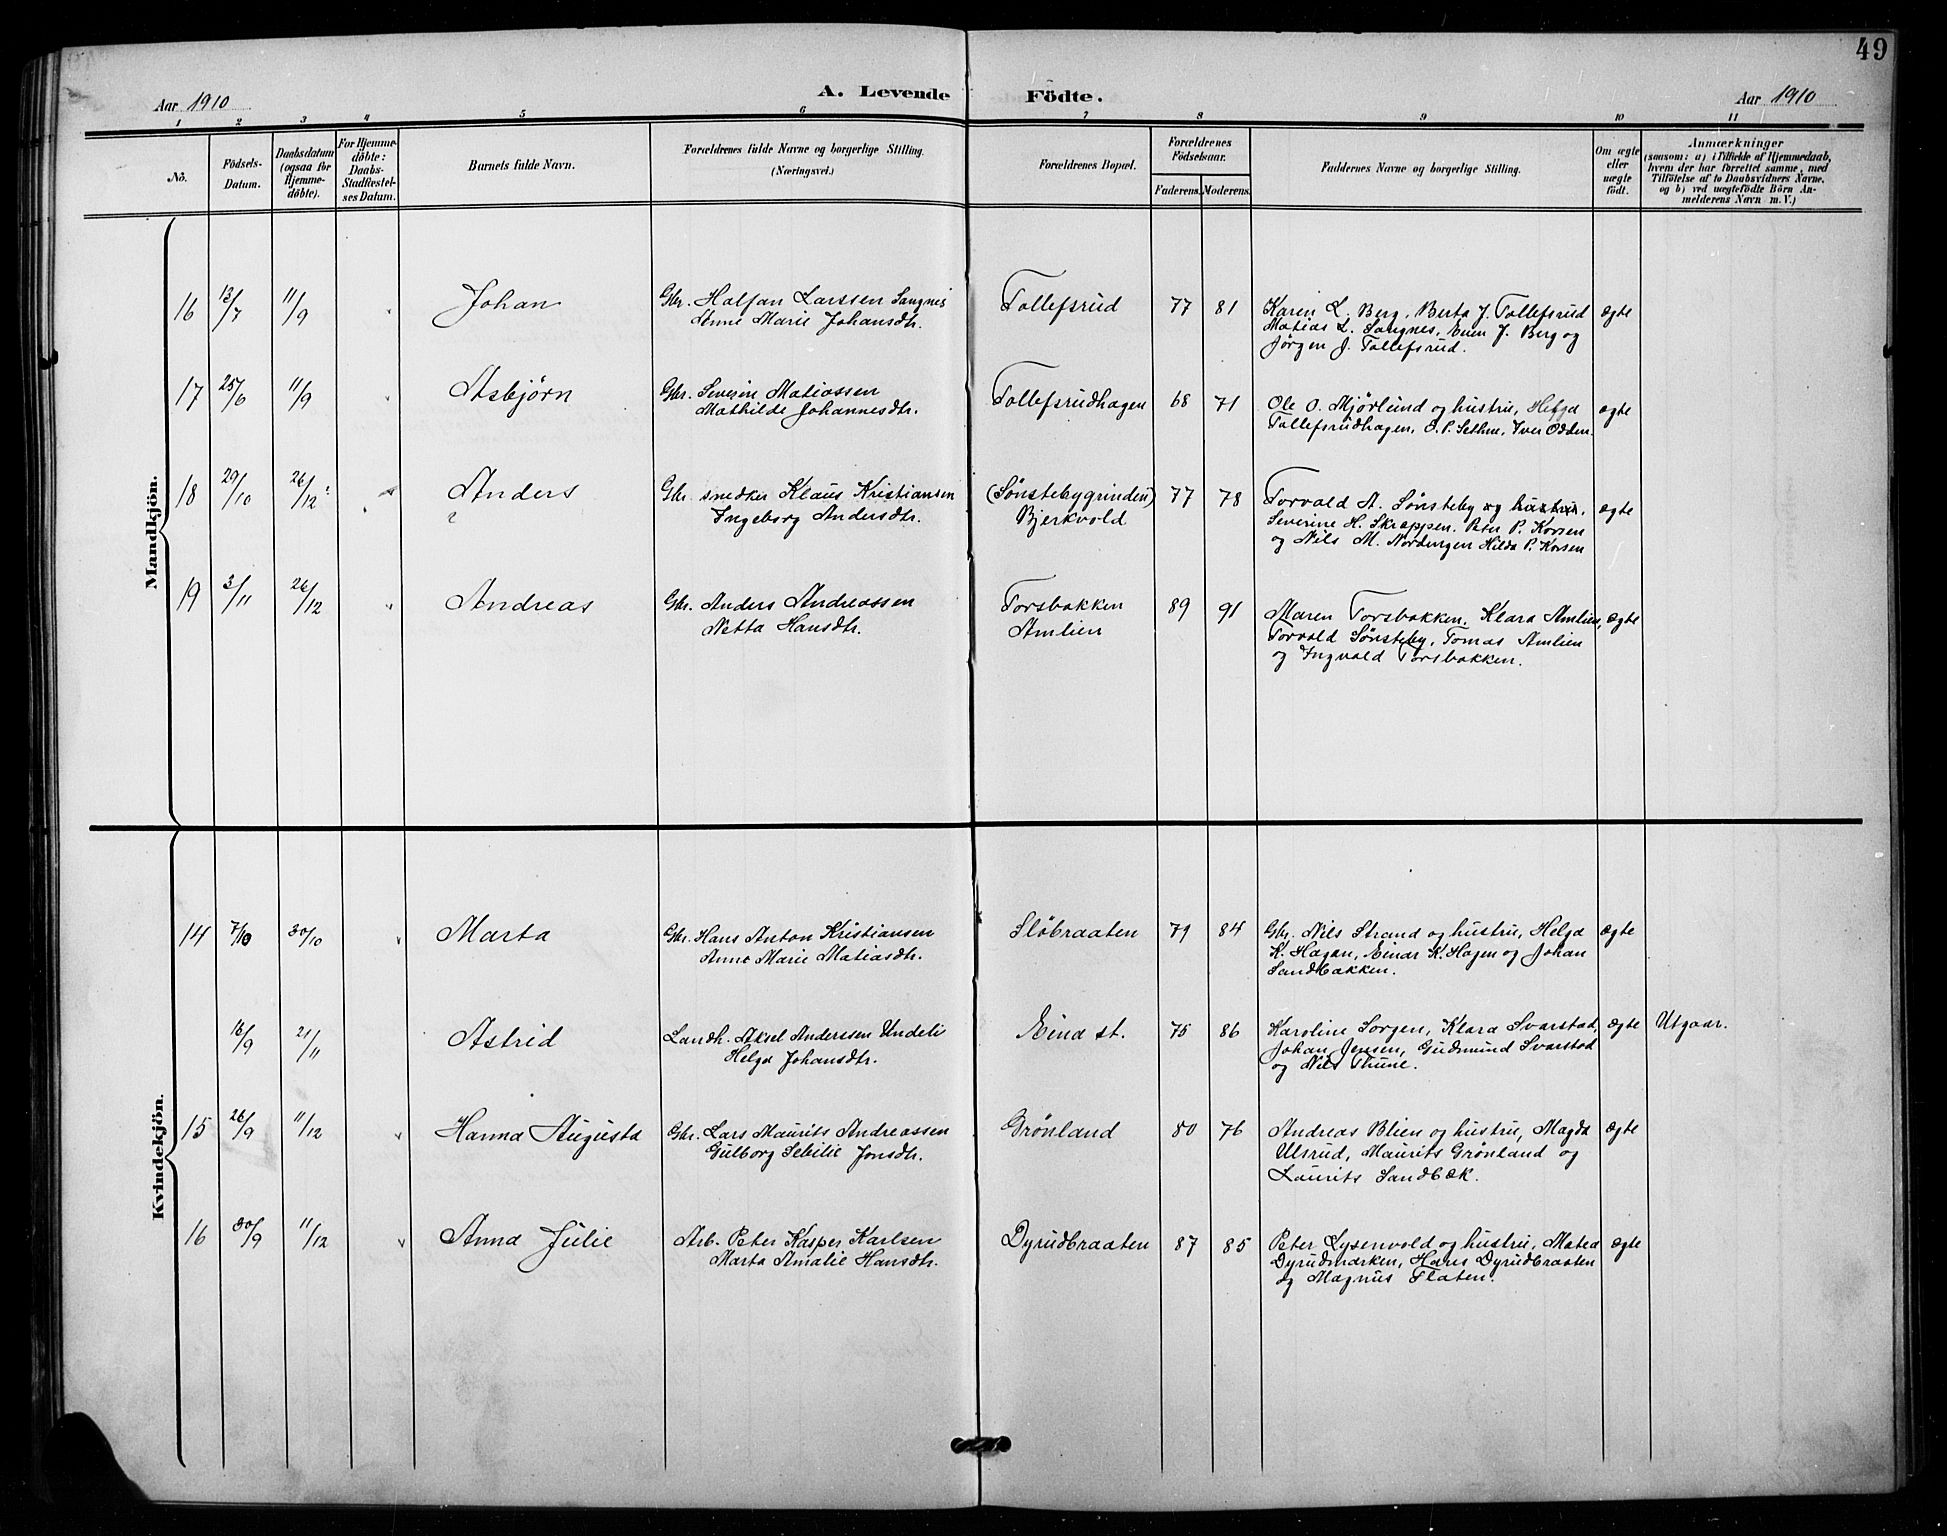 49
Aar 1910
A. Levende Födte.
Aar 1910
1 2 3 4 5 6 7 8 9 10 11
Nô.
Födsels-
Datum.
Daabsdatum
(ogsaa for
Hjemme-
döbte).
For Hjemme-
döbte:
Daabs-
Stadfæstel-
ses Datum.
Barnets fulde Navn.
Forældrenes fulde Navne og borgerlige Stilling.
(Næringsvei.)
Forældrenes Bopæl.
Forældrenes
Födselsaar.
Faderens. Moderens.
Faddernes Navne og borgerlige Stilling.
Om ægte
eller
uægte
födt.
Anmærkninger
(saasom: a) i Tilfælde af Hjemmedaab,
hvem der har forrettet samme, med
Tilföielse af to Daabsvidners Navne,
og b) ved uægtefödte Börn An-
melderens Navn m. V.)
Mandkjön.
16 13/7 11/9 Johan
Gbr. Halfan Larssen Sangnes
Anne Marie Johansdtr.
Tollefsrud 77 81
Karen L. Berg, Berta J. Tollefsrud
Matias L. Sangnes, Even J. Berg og
Jörgen J. Tollefsrud.
ægte
17 25/6 11/9 Asbjörn
Gbr. Severin Matiassen
Mathilde Johannesdtr.
Tollefsrudhagen 68 71
Ole O. Mjörlund og hustru, Helga
Tollefsrudhagen, O. P. Sethne, Iver Odden.
ægte
18 29/10 26/12 Anders
Gbr. snedker Klaus Kristiansen
Ingeborg Andersdtr.
(Sönstebygrinden)
Bjerkvold
77 78
Torvald A. Sönsteby og hustru,
Severine H. Skrappen. Peter P. Korsen
og Nils M. Nordengen Hilda P. Korsen
ægte
19 3/11 26/12 Andreas
Gbr. Anders Andreassen
Netta Hansdtr.
Torsbakken
Amlien
89 91
Maren Torsbakken, Klara Amlien,
Torvald Sönsteby, Tomas Amlien
og Ingvald Torsbakken.
ægte
Kvindekjön.
14 7/10 30/10 Marta
Gbr. Hans Anton Kristiansen
Anne Marie Matiasdtr.
Slöbraaten 79 84
Gbr. Nils Strand og hustru, Helga
K. Hagan, Einar K. Hagen og Johan
Sandbakken.
ægte
18/9 21/11 Astrid
Landh. Aksel Anderssen Undeli
Helga Johansdtr.
Eina st. 75 86
Karoline Sorgen, Klara Svarstad,
Johan Jensen, Gudmund Svarstad
og Nils Thune.
ægte Utgaar.
15 26/9 11/12 Hanna Augusta
Gbr. Lars Maurits Andreassen
Gulborg Sebilie Jonsdtr.
Grönland 80 76
Andreas Blien og hustru, Magda
Ulsrud, Maurits Grönland og
Laurits Sandbæk.
ægte
16 30/9 11/12 Anna Julie
Arb. Peter Kasper Karlsen
Marta Amalie Hansdtr.
Dyrudbraaten 87 85
Peter Lysenvold og hustru, Matea
Dyrudmarken, Hans Dyrudbraaten
og Magnus Flaten.
ægte